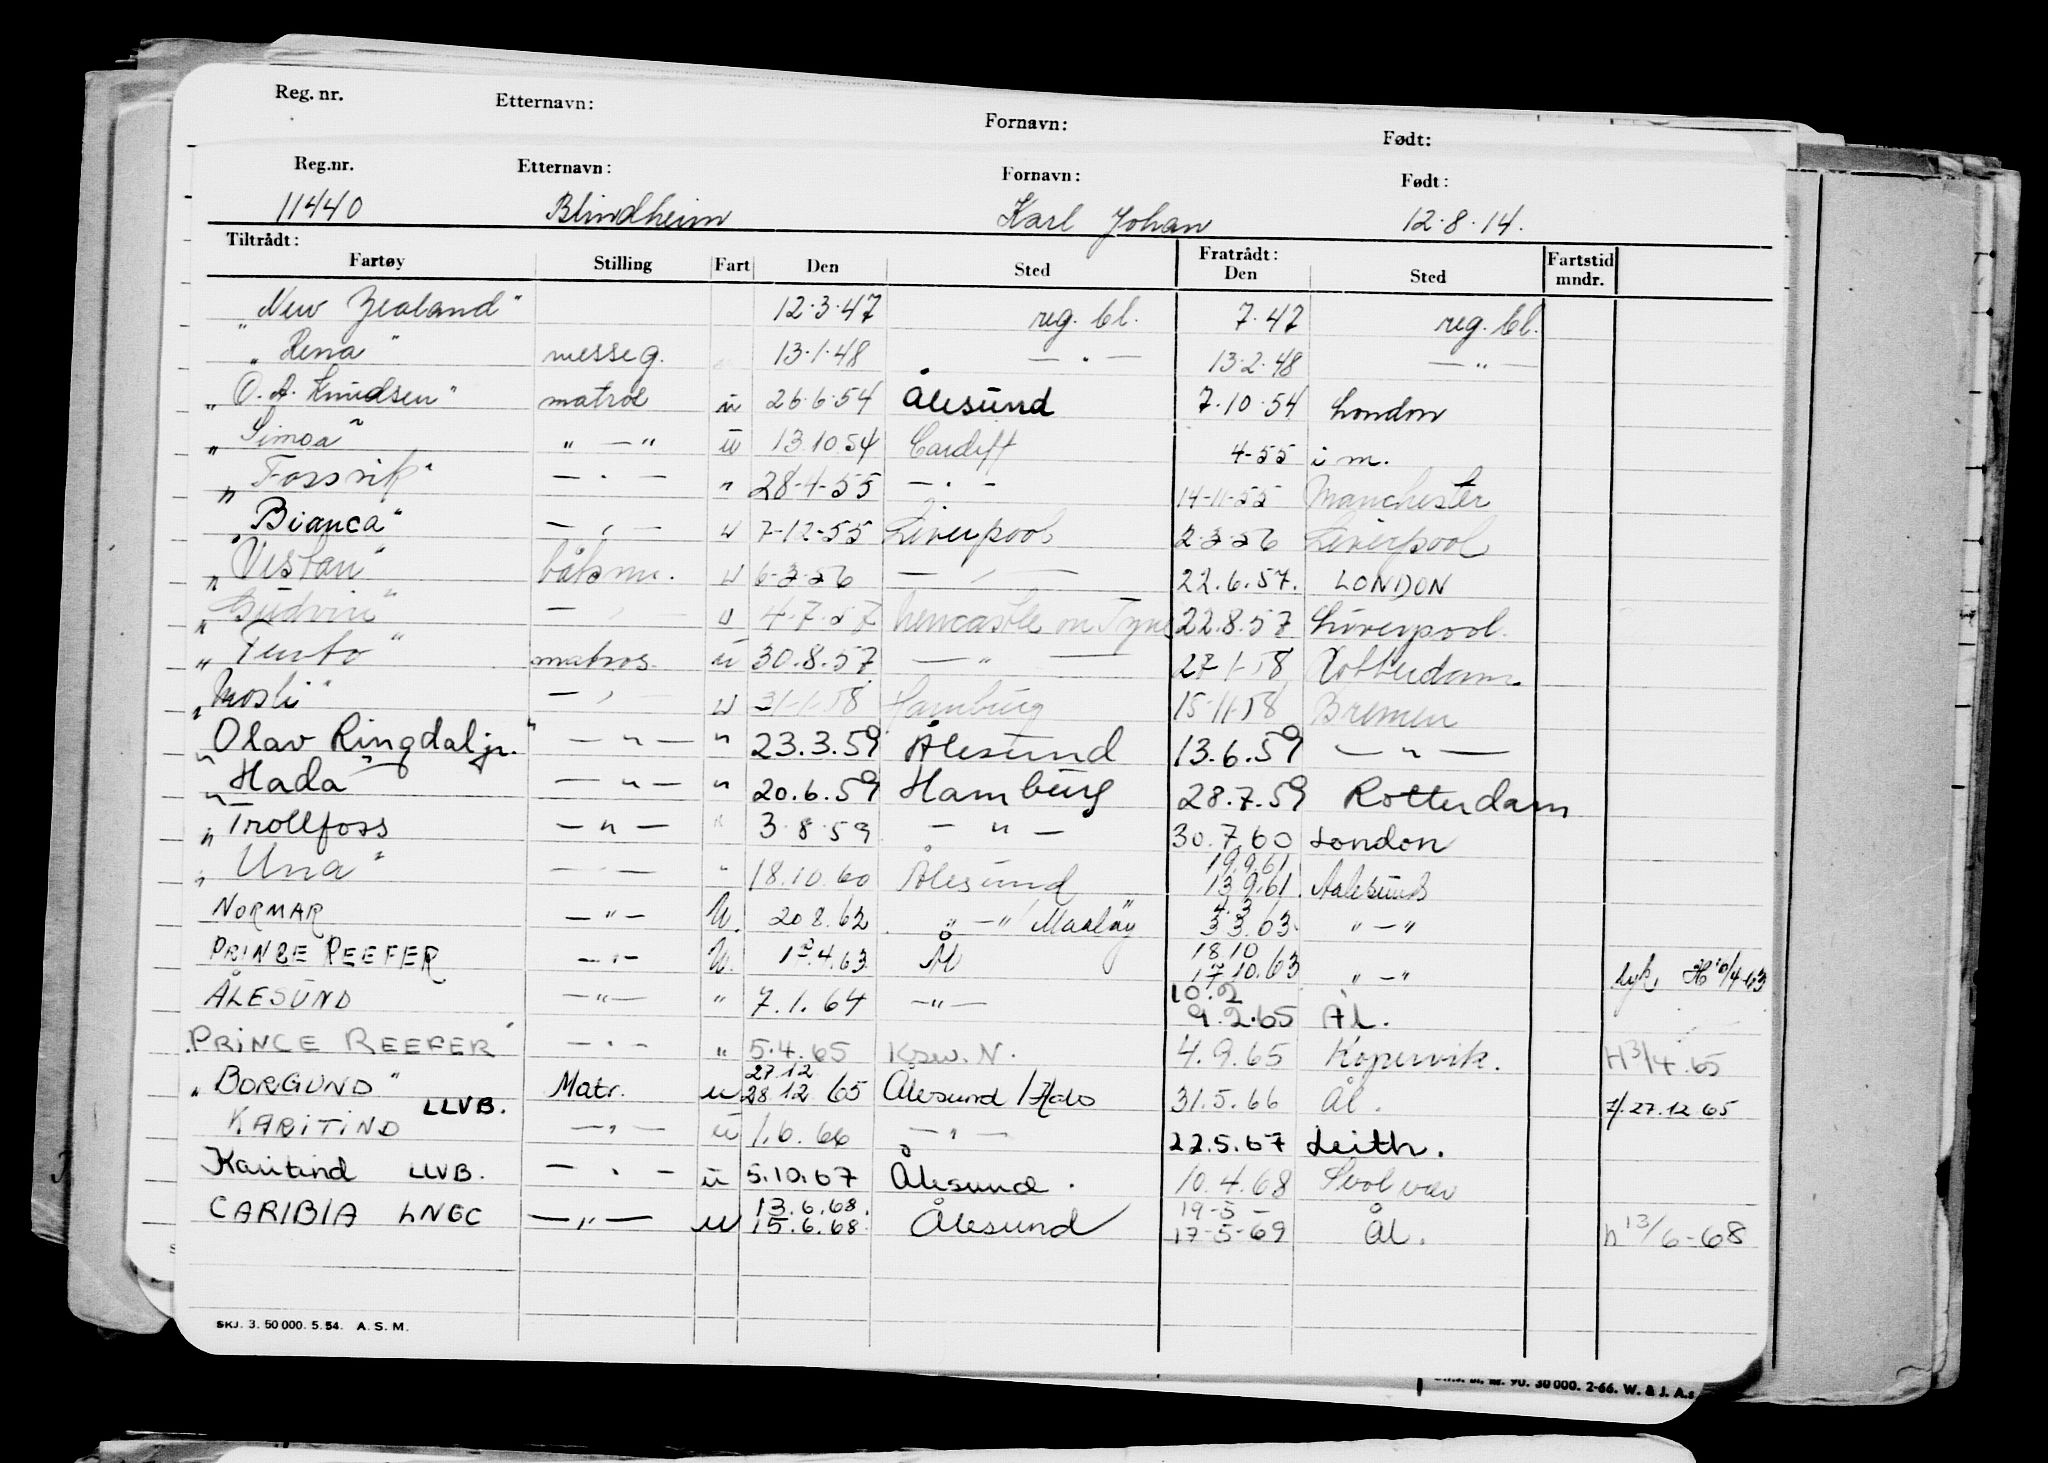 Reg. nr. Etternavn: Fornavn: Født:
Reg.nr. Etternavn: Fornavn: Født:
11440 Blindheim Karl Johan 12.8.14.
Tiltrådt: Fratrådt:
Fartøy Stilling Fart Den Sted Den Sted Fartstid mndr.
"New Zealand" 12.3.47 reg. bl. 7.47 reg. bl.
"Rena" messeg. 13.1.48 — " — 13.2.48 — " —
"O. A. Knudsen" matros u 26.6.54 Ålesund 7.10.54 London
"Simoa" " — " u 13.10.54 Cardiff 4-55 i m.
"Fossvik" — " — " 28-4-55 — " — 14-11-55 Manchester
"Bianca" — " — u 7-12-55 Liverpool 2-3-56 Liverpool
"Vestan" båtsm. u 6-3-56 — " — 22.6.57. LONDON
"Gudvin" — " — u 4-7-57 Newcastle on Tyne 22.8.57 Liverpool.
"Tento" matros. u 30.8.57 — " — 27-1-58 Rotterdam
"Mosli" — " — u 31-1-58 Hamburg 15-11-58 Bremen
"Olav Ringdal jr." — " — " 23.3.59 Ålesund 13.6.59 — " —
"Hada" — " — " 20.6.59 Hamburg 28.7.59 Rotterdam
"Trollfoss — " — " 3.8.59 — " — 30.7.60 London
19.9.61
"Una" — " — " 18.10.60 Ålesund 13.9.61 Aalesund
4.3
NORMAR — " — U. 20.8.62 " — " Maaløy 3.3.63. " — "
18.10
PRINCE REEFER — " — U. 1.4.63 Ål 17.10.63 " — " hyk. H 10/4-63
10.2
ÅLESUND — " — " 7.1.64 — " — 9.2.65 Ål.
PRINCE REEFER — " — " 5.4.65 Krsv. N. 4.9.65 Kopervik. H 3/4.65
27.12
"BORGUND" Matr. u 28.12.65 Ålesund / 31.5.66 Ål. H. 27.12.65
KARITIND LLVB. — " — u 1.6.66 — " — 22.5.67 Leith.
Karitind LLVB. — " — u 5.10.67 Ålesund. 10.4.68 Svolvær
13.6.68. 19-5-
CARIBIA LNGC — " — u 15.6.68 Ålesund 17-5-69 Ål. h 13/6-68
SKJ. 3. 50 000. 5. 54. A. S. M.
90. 30 000. 2-66. W. & J. A.s